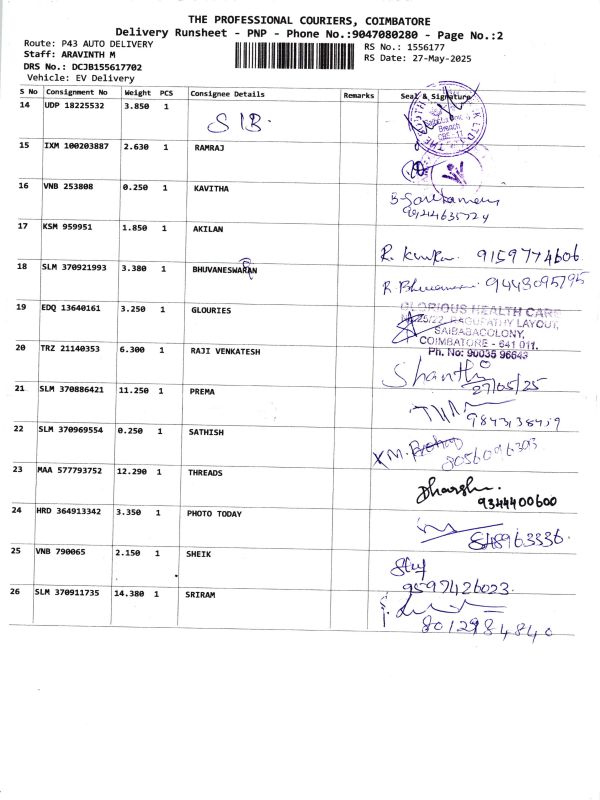 THE PROFESSIONAL COURIERS, COIMBATORE
Delivery Runsheet - PNP - Phone No.:9047080280 - Page No.:2
Route: P43 AUTO DELIVERY
Staff: ARAVINTH M
DRS No.: DCJB155617702
Vehicle: EV Delivery
RS No.: 1556177
RS Date: 27-May-2025
S No Consignment No Weight PCS Consignee Details Remarks Seal & Signature
14 UDP 18225532 3.850 1 SIB.
15 IXM 100203887 2.630 1 RAMRAJ
16 VNB 253808 0.250 1 KAVITHA
17 KSM 959951 1.850 1 AKILAN
R. 9159774606
18 SLM 370921993 3.380 1 BHUVANESWARAN
9448095795
19 EDQ 13640161 3.250 1 GLOURIES
GLORIOUS HEALTH CARE
RAGUPATHY LAYOUT,
SAIBABACOLONY,
COIMBATORE - 641 011.
Ph. No: 90035 96643
20 TRZ 21140353 6.300 1 RAJI VENKATESH
Shanthi
27/05/25
21 SLM 370886421 11.250 1 PREMA
22 SLM 370969554 0.250 1 SATHISH
8056096303
23 MAA 577793752 12.290 1 THREADS
Dharshu.
9344400600
24 HRD 364913342 3.350 1 PHOTO TODAY
25 VNB 790065 2.150 1 SHEIK
9597426023.
26 SLM 370911735 14.380 1 SRIRAM
8012984840